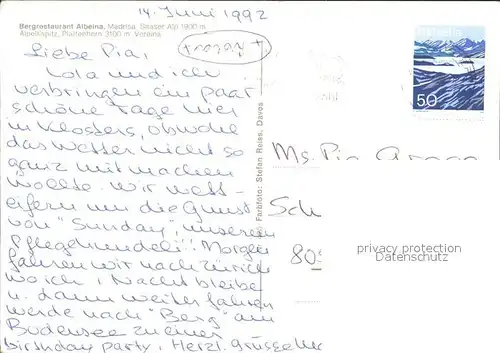 14. Juni 1992
Bergrestaurant Albeina, Madrisa, Saaser Alp 1900 m
Älpeltispitz, Plattenhorn 3100 m Vereina
Helvetia
50
Liebe Pia,
Lola und ich
verbringen ein paar
schöne Tage hier
in Klosters, obwohl
das Wetter nicht so
ganz mitmachen
wollte. Wir wett-
eifern um die Gunst
von "Sunday", unserem
Pflegehundeli!! Morgen
fahren wir nach Zürich
wo ich 1 Nacht bleibe
u. dann weiterfahren
werde nach "Berg" am
Bodensee zu einer
birthday party, Herzl. Grüsse
Farbfoto: Stefan Reiss, Davos
Ms. Pia
Sch
80
privacy protection
Datenschutz